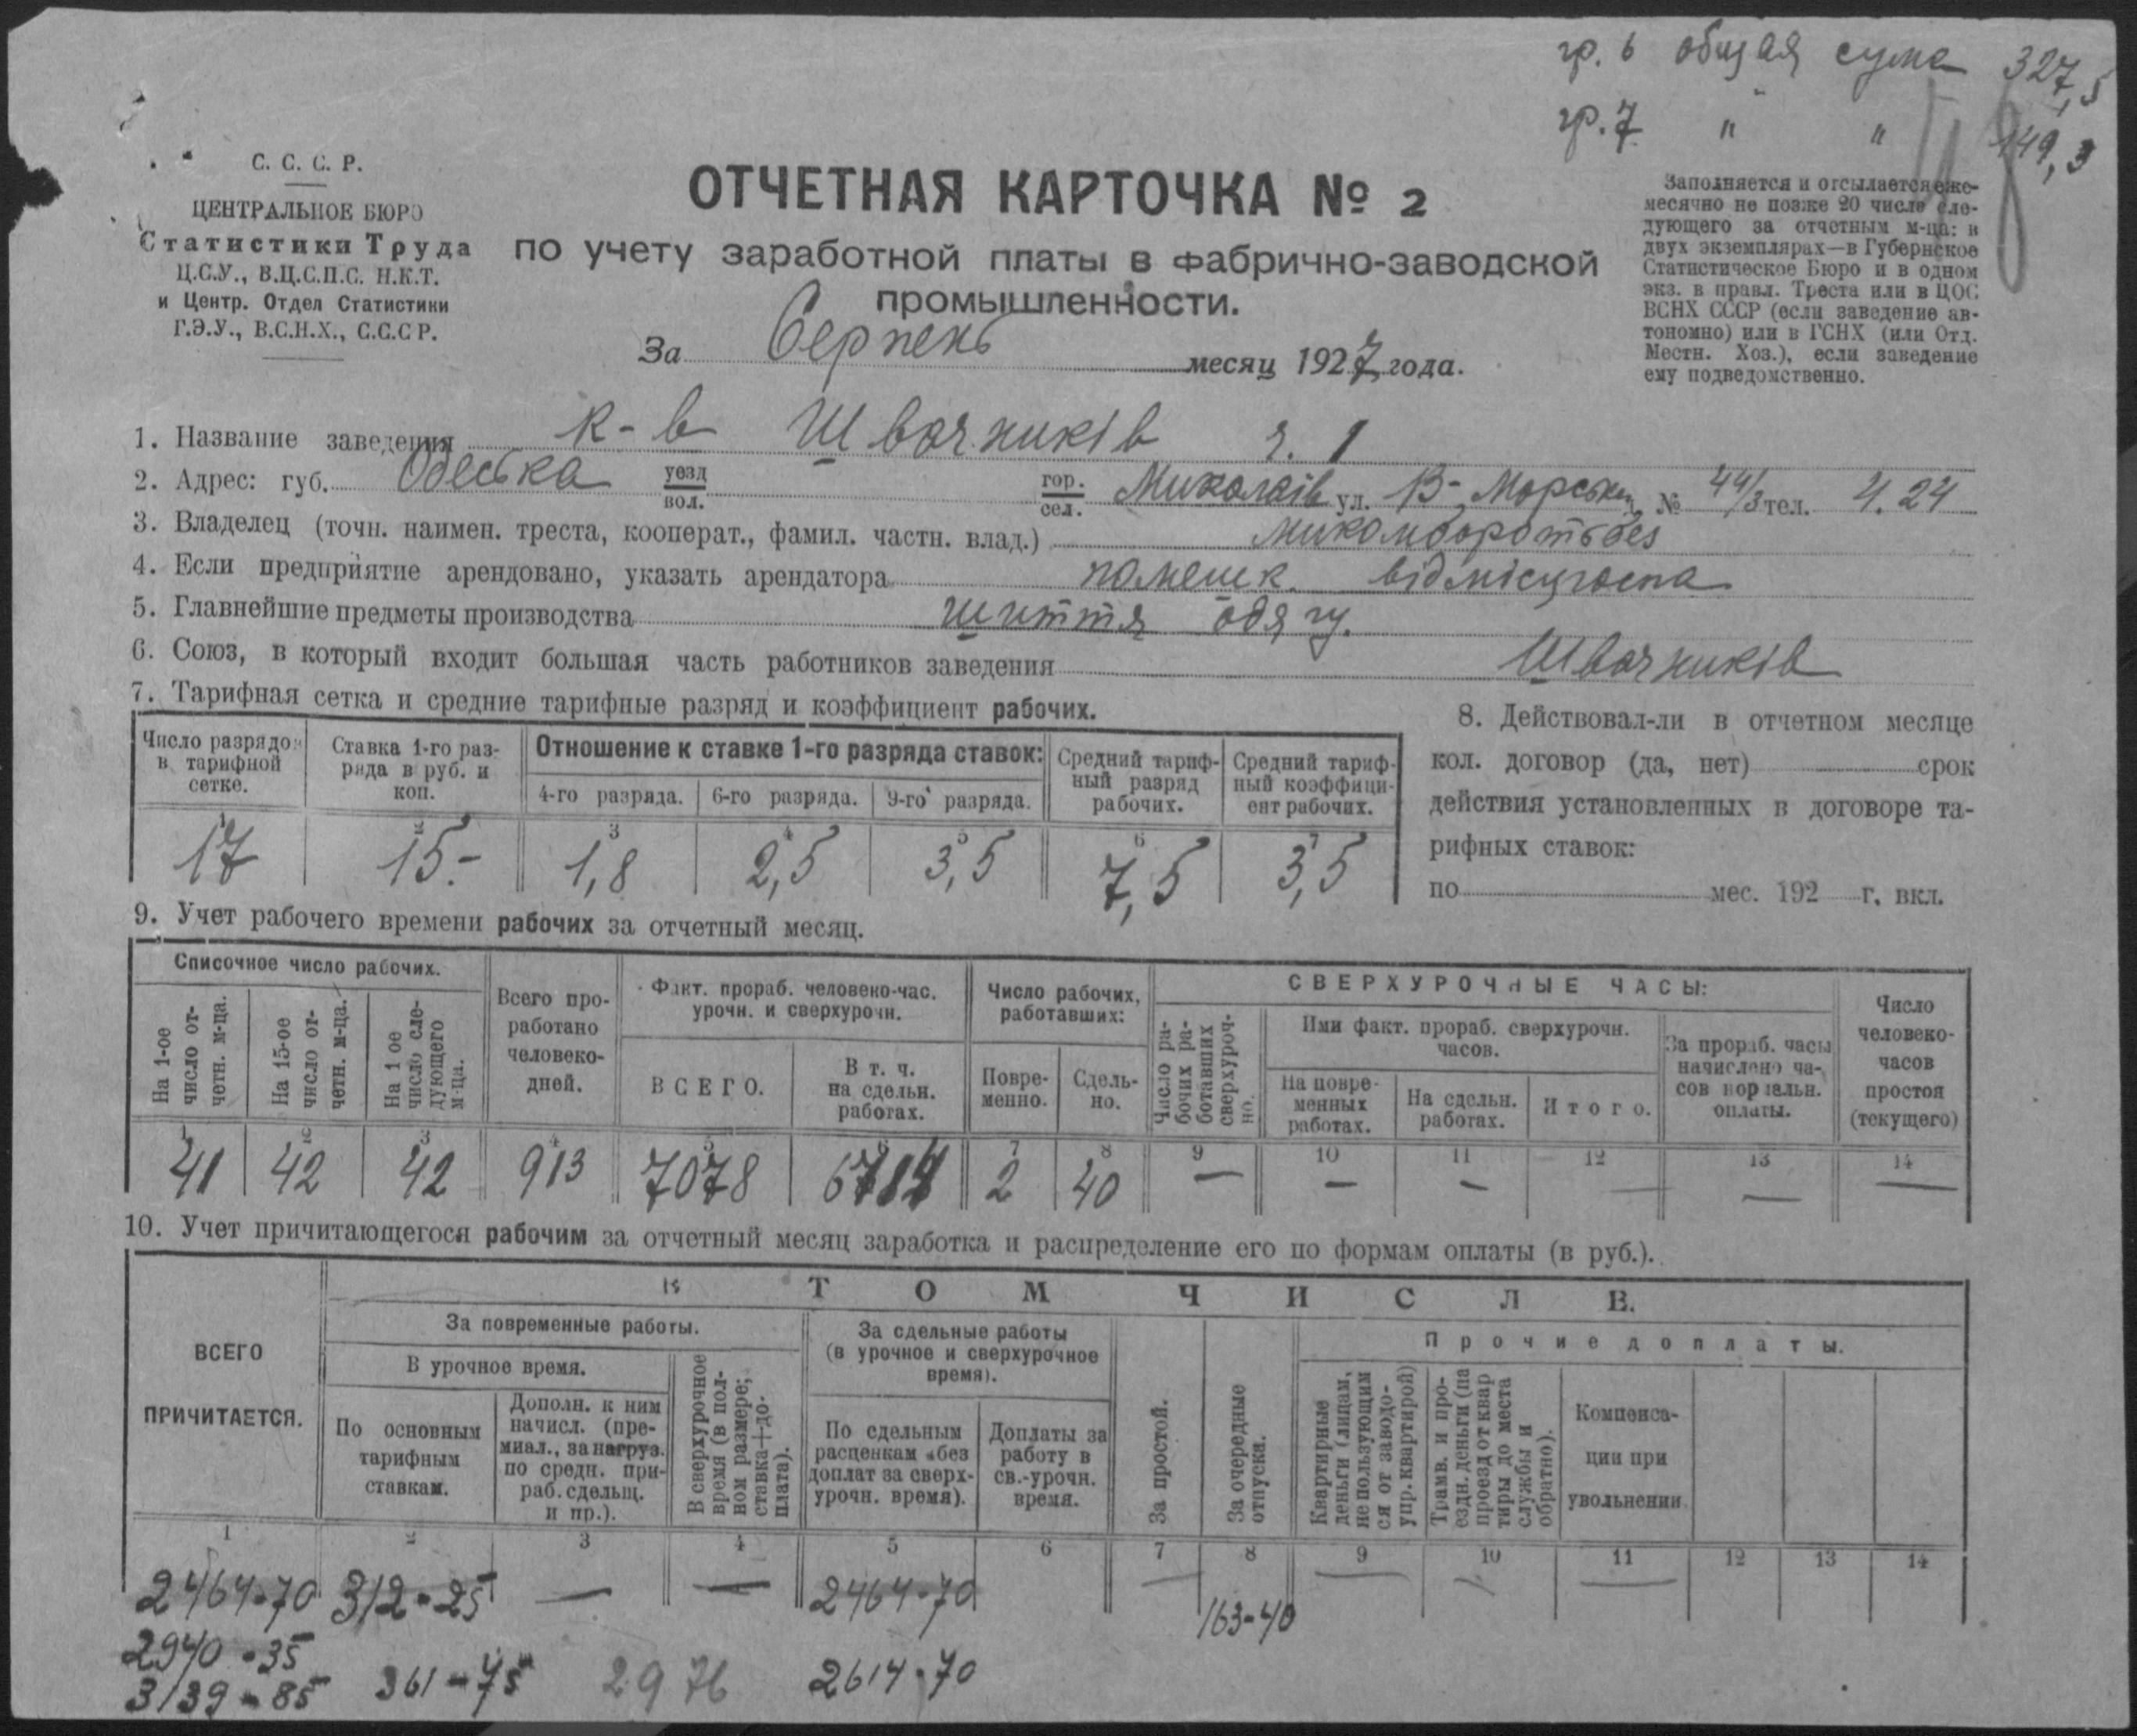 гр. 6 общая сума 327,5
гр. 7 " " 149,3
С. С. С. Р.
ЦЕНТРАЛЬНОЕ БЮРО
Статистики Труда
Ц.С.У., В.Ц.С.П.С. Н.К.Т.
и Центр. Отдел Статистики
Г.Э.У., В.С.Н.Х., С.С.С Р.
ОТЧЕТНАЯ КАРТОЧКА № 2
по учету заработной платы в фабрично-заводской
промышленности.
За Серпень месяц 1927 года.
Заполняется и отсылается еже-
месячно не позже 20 числа сле-
дующего за отчетным м-ца: в
двух экземплярах—в Губернское
Статистическое Бюро и в одном
экз. в правл. Треста или в ЦОС
ВСНХ СССР (если заведение ав-
тономно) или в ГСНХ (или Отд.
Местн. Хоз.), если заведение
ему подведомственно.
1. Название заведения К-в Швачників ч. 1
2. Адрес: губ. Одеська уезд вол. гор. сел. Миколаїв ул. В-Морська № 44/3 тел. 4.24
3. Владелец (точн. наимен. треста, кооперат., фамил. частн. влад.)
4. Если предприятие арендовано, указать арендатора помешк. відмісцгоспа
5. Главнейшие предметы производства шиття одягу.
6. Союз, в который входит большая часть работников заведения Швачників
7. Тарифная сетка и средние тарифные разряд и коэффициент рабочих.
Число разрядов в тарифной сетке.
Ставка 1-го раз-ряда в руб. и коп.
Отношение к ставке 1-го разряда ставок:
4-го разряда. 6-го разряда. 9-го разряда.
Средний тариф-ный разряд рабочих.
Средний тариф-ный коэффици-ент рабочих.
1 2 3 4 5 6 7
17 15.- 1,8 2,5 3,5 7,5 3,5
8. Действовал-ли в отчетном месяце
кол. договор (да, нет) срок
действия установленных в договоре та-
рифных ставок:
по мес. 192 г. вкл.
9. Учет рабочего времени рабочих за отчетный месяц.
Списочное число рабочих.
На 1-ое число от-четн. м-ца.
На 15-ое число от-четн. м-ца.
На 1 ое число сле-дующего м-ца.
Всего про-работано человеко-дней.
Факт. прораб. человеко-час. урочн. и сверхурочн.
ВСЕГО.
В т. ч. на сдельн. работах.
Число рабочих, работавших:
Повре-менно.
Сдель-но.
СВЕРХУРОЧНЫЕ ЧАСЫ:
Число ра-бочих ра-ботавших сверхуроч-но.
Ими факт. прораб. сверхурочн. часов.
На повре-менных работах.
На сдельн. работах.
Итого.
За прораб. часы начислено ча-сов нормальн. оплаты.
Число человеко-часов простоя (текущего)
1 2 3 4 5 6 7 8 9 10 11 12 13 14
41 42 42 913 7078 2 40 — — — — — —
10. Учет причитающегося рабочим за отчетный месяц заработка и распределение его по формам оплаты (в руб.).
ВСЕГО ПРИЧИТАЕТСЯ.
В ТОМ ЧИСЛЕ.
За повременные работы.
В урочное время.
По основным тарифным ставкам.
Дополн. к ним начисл. (пре-миал., за нагруз. по средн. при-раб. сдельщ. и пр.).
В сверхурочное время (в пол-ном размере; ставка+до-плата).
За сдельные работы (в урочное и сверхурочное время).
По сдельным расценкам (без доплат за сверх-урочн. время).
Доплаты за работу в св.-урочн. время.
За простой.
За очередные отпуска.
Прочие доплаты.
Квартирные деньги (лицам, не пользующим ся от заводо-упр. квартирой)
Трамв. и про-ездн. деньги (на проезд от квар тиры до места службы и обратно).
Компенса-ции при увольнении
1 2 3 4 5 6 7 8 9 10 11 12 13 14
2464-70 312-25 — — 2464-70 — 163-40 — —
2940-35
3139-85 361-75 2976 2614-70